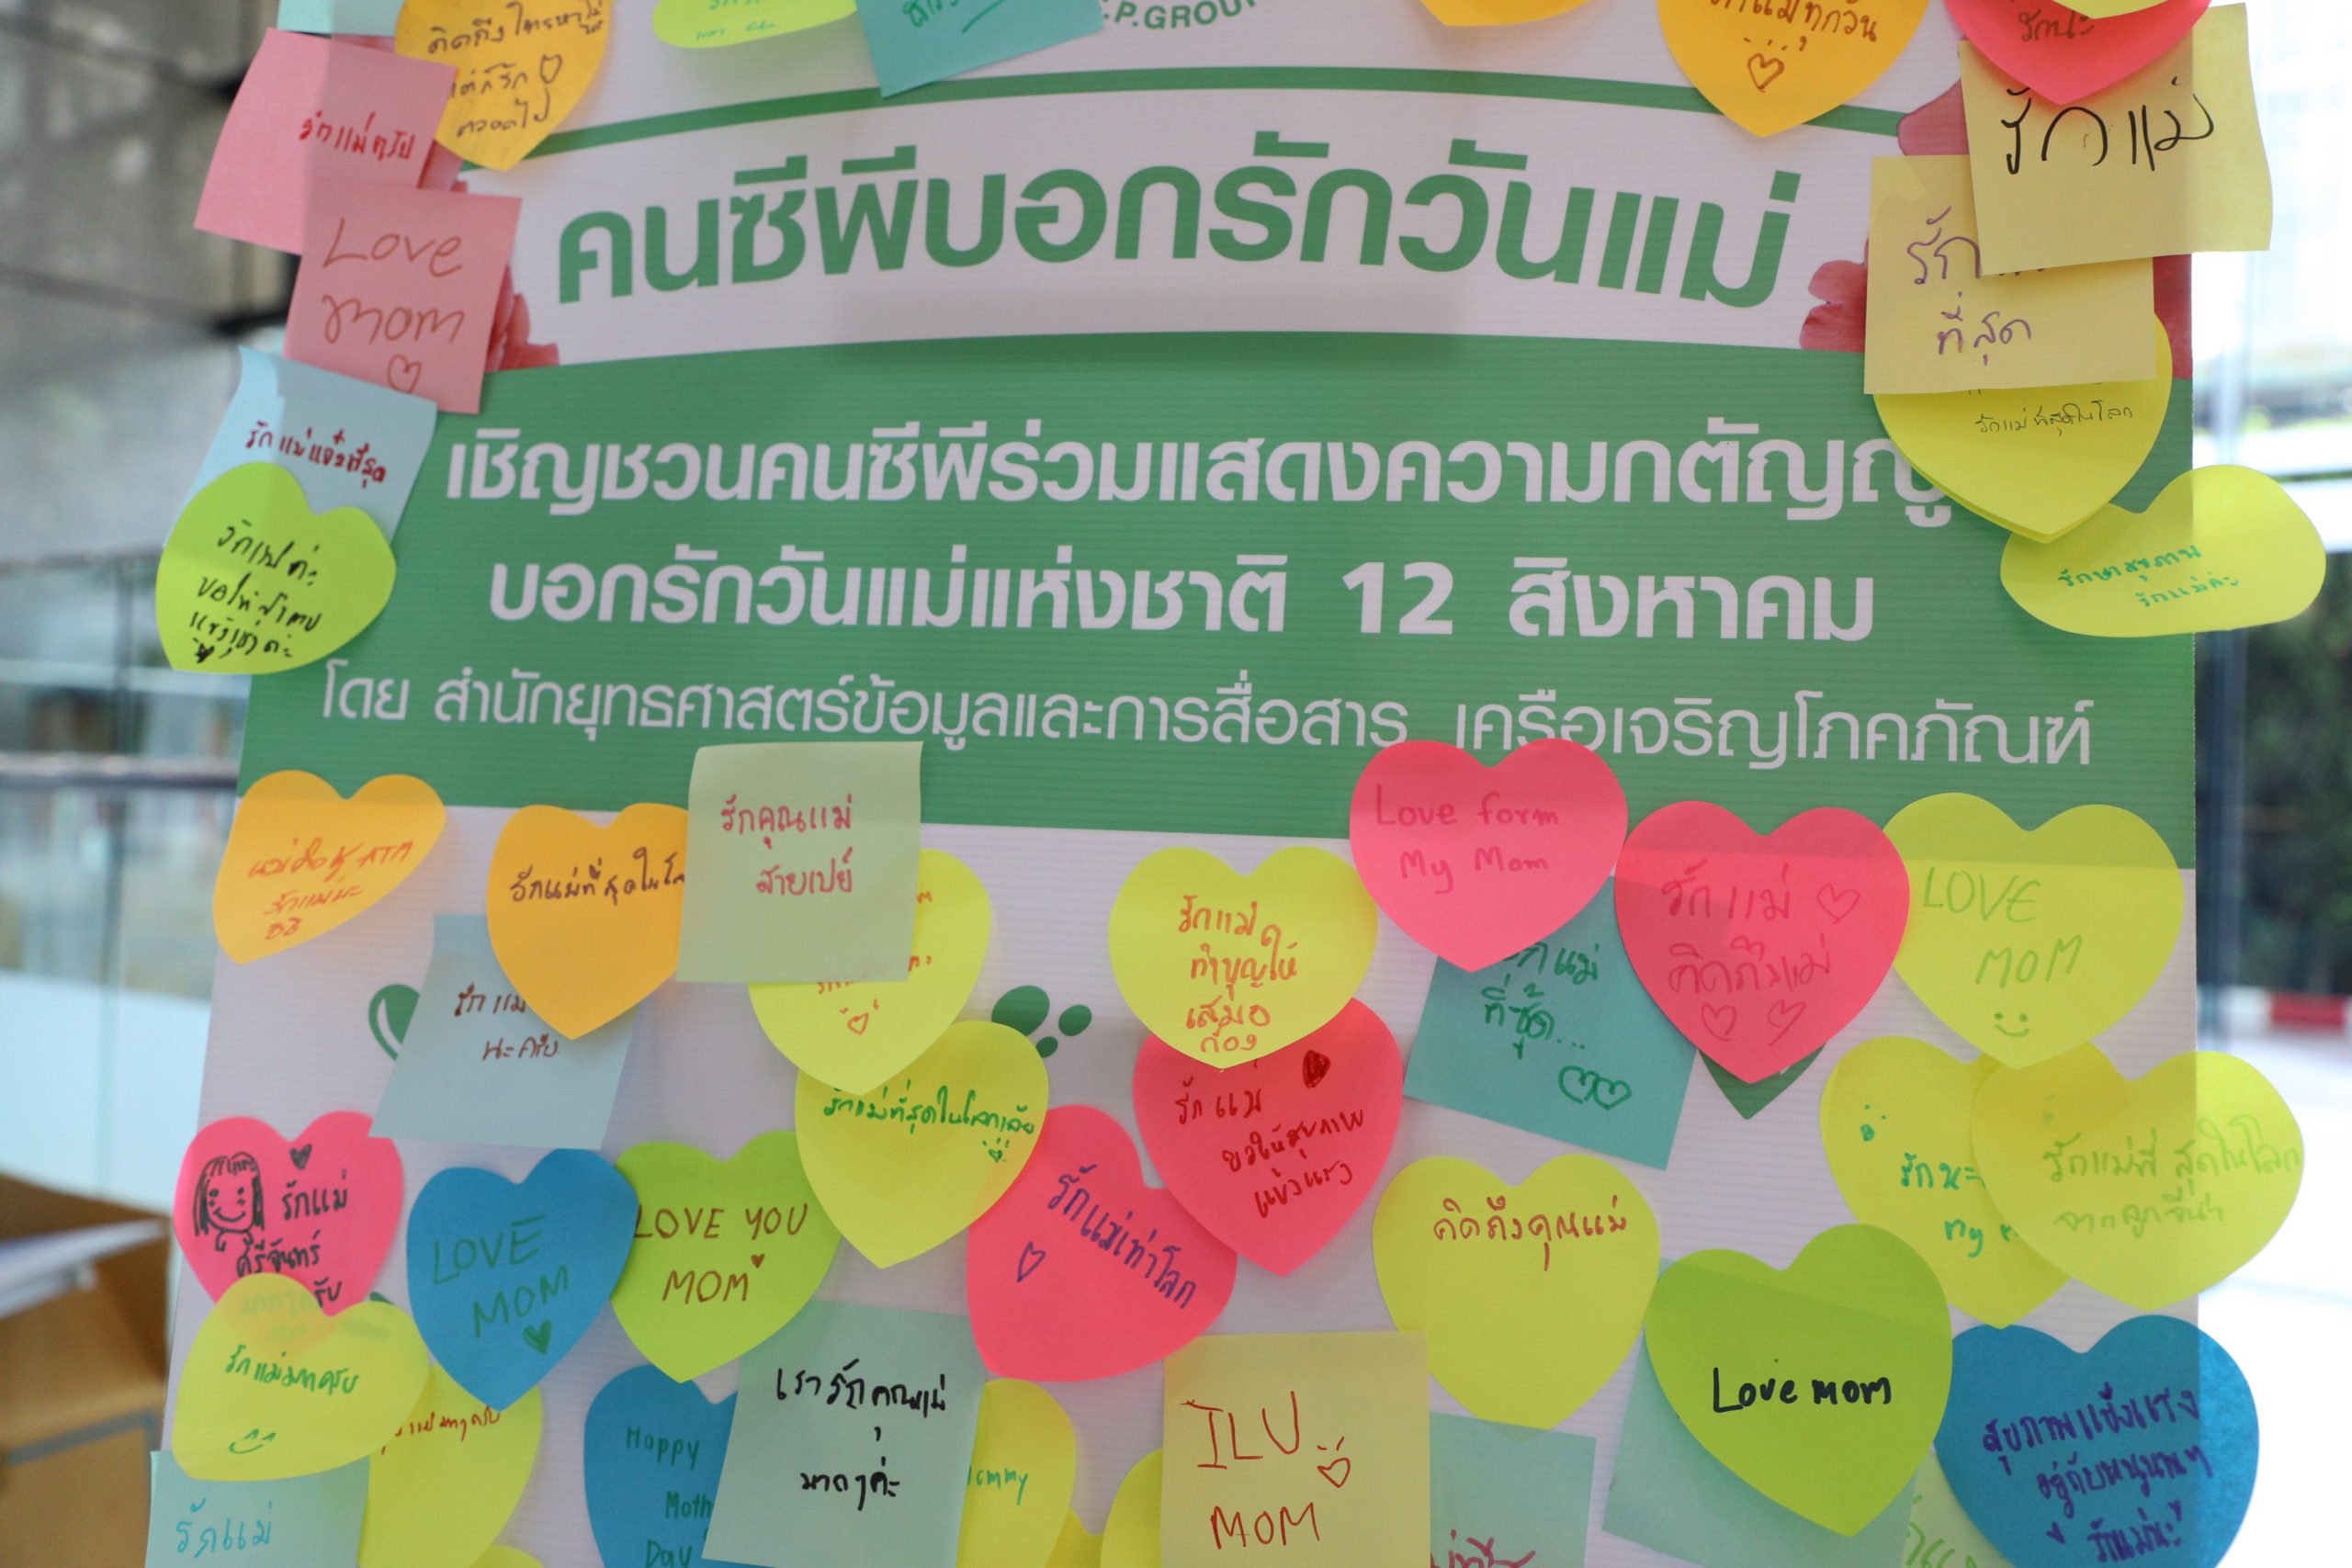 คิดถึง
ตลอดไป
P.GROUP
รักแม่ทุกวัน
รักนะ
รักแม่ครับ
รักแม่
คนซีพีบอกรักวันแม่
Love
mom
รัก
ที่สุด
รักแม่ที่สุดในโลก
เชิญชวนคนซีพีร่วมแสดงความกตัญญู
รักแม่
บอกรักวันแม่แห่งชาติ 12 สิงหาคม
รักษาสุขภาพ
รักแม่ค่ะ
โดย สำนักยุทธศาสตร์ข้อมูลและการสื่อสาร เครือเจริญโภคภัณฑ์
รักคุณแม่
สายเปย์
Love form
My Mom
รักแม่ที่สุดในโล
รักแม่
คิดถึงแม่
LOVE
MOM
รักแม่
ทำบุญให้
เสมอ
ต้อง
รักแม่
นะครับ
รักแม่
ที่ซู้ด...
รักแม่ที่สุดในโลกเลย
รักแม่
ขอให้สุขภาพ
แข็งแรง
รักแม่
ศรีจันทร์
รักแม่เท่าโลก
รักนะ
my
รักแม่ที่สุดในโลก
จากลูก
LOVE
MOM
LOVE YOU
MOM
คิดถึงคุณแม่
รักแม่มากครับ
เรารักคุณแม่
มากๆค่ะ
Love mom
ILU
MOM
Happy
Moth
Day
สุขภาพแข็งแรง
อยู่กับหนูนานๆ
รักแม่นะ
รักแม่